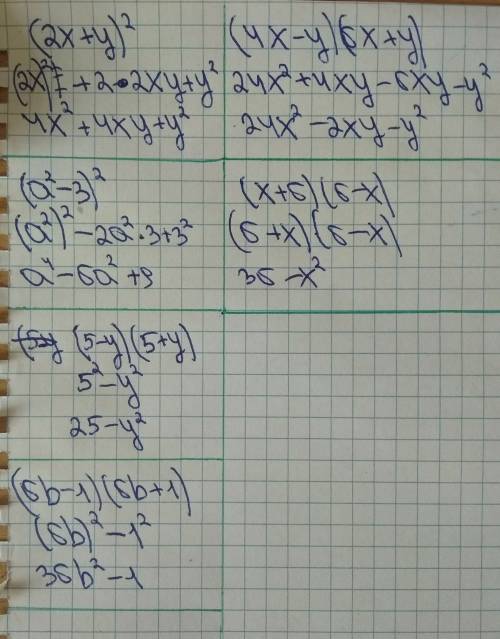 (2x+y)²
(2x)² + 2·2xy+y²
4x²+4xy+y²
(4x-y)(6x+y)
24x²+4xy-6xy-y²
24x²-2xy-y²
(a²-3)²
(a²)²-2a²·3+3²
a⁴-6a²+9
(x+6)(6-x)
(6+x)(6-x)
36-x²
(5-y)(5+y)
5²-y²
25-y²
(6b-1)(6b+1)
(6b)²-1²
36b²-1